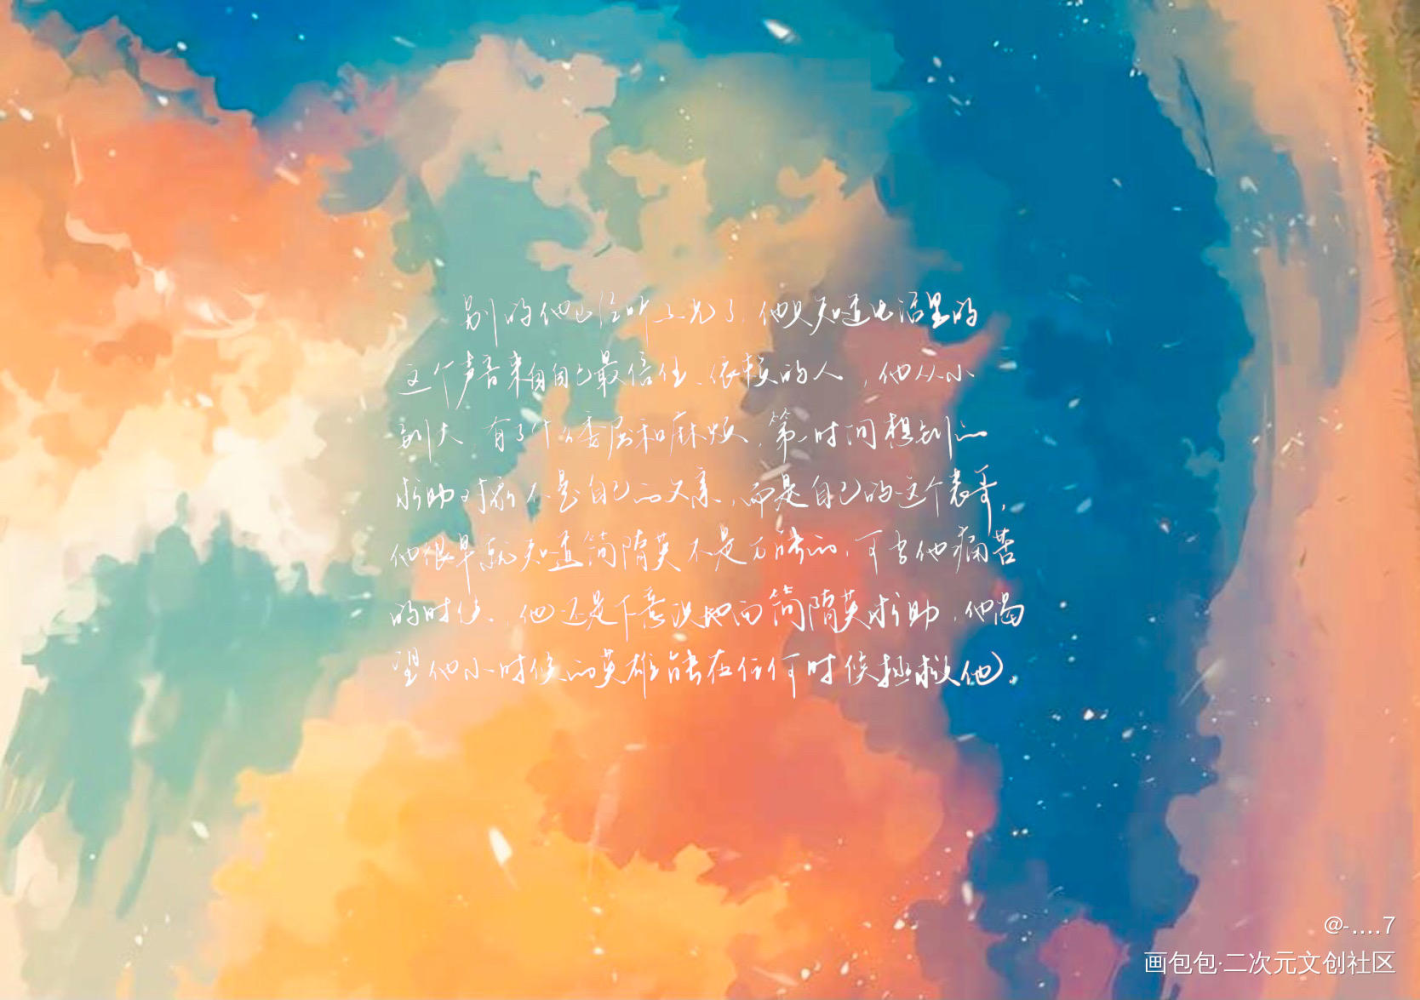 别的他已经听不见了，他只知道电话里的
这个声音来自自己最信任、依赖的人，他从小
到大，有了什么委屈和麻烦，第一时间想到的
求助对象不是自己的父亲，而是自己的这个表哥，
他很早就知道简隋英不是万能的，可当他痛苦
的时候，他还是下意识地向简隋英求助，他渴
望他小时候的英雄能在任何时候拯救他。
@-....7
画包包·二次元文创社区